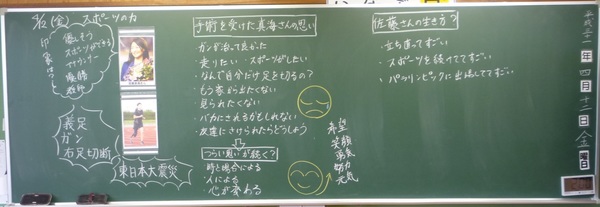 4/12(金) スポーツの力
印象は?
優しそう
スポーツができる
アナウンサー
優勝
教師
義足
ガン
右足切断
東日本大震災
手術を受けた真海さんの思い
・ガンが治って良かった
・走りたい スポーツがしたい
・なんで自分だけ足を切るの?
・もう夢から出たくない
・見られたくない
・バカにされるかもしれない
・友達にさけられたらどうしよう
つらい思いが続く?
・時と場合による
・人による
・心が変わる
希望
笑顔
勇気
努力
元気
佐藤さんの生き方?
・立ち直ってすごい
・スポーツを続けててすごい
・パラリンピックに出場しててすごい
平成三十一年四月十二日金曜日